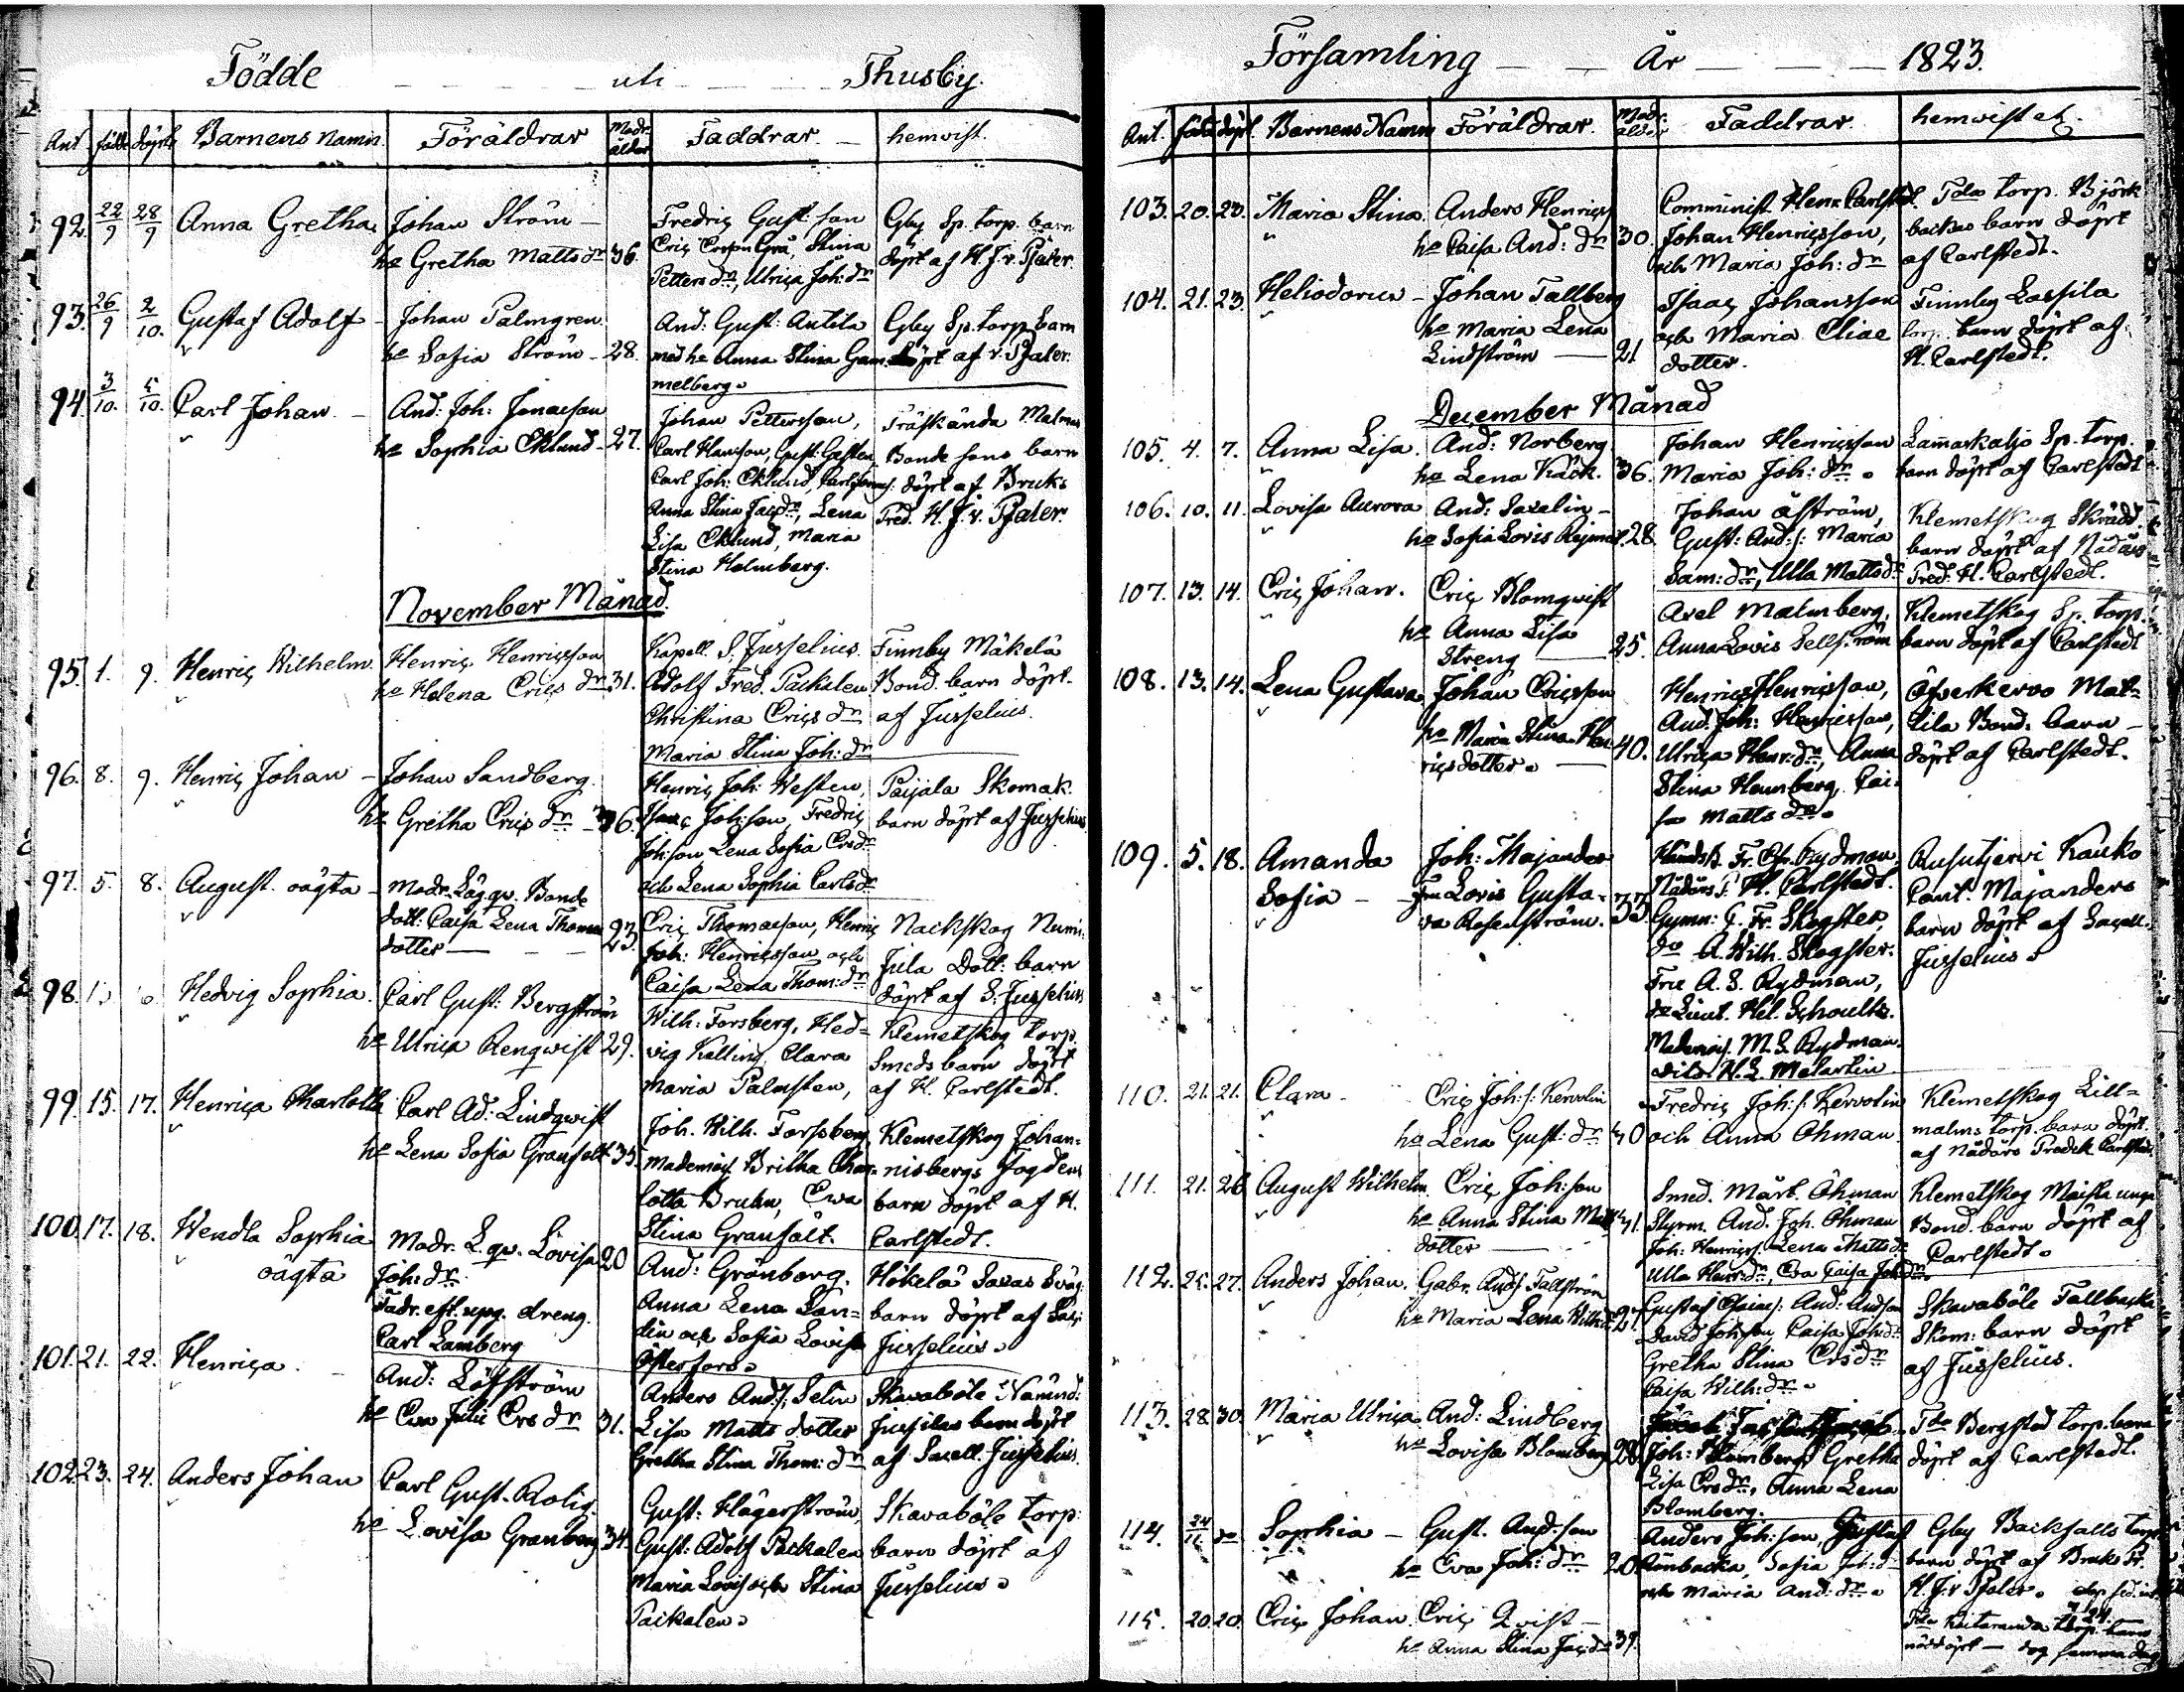 Födde uti Thusby.
Ant. född döpt Barnens Namn. Föräldrar Modr. ålder Faddrar hemvist.
92. 22/9 28/9 Anna Gretha Johan Ström
hu Gretha Matts dr 36.
Fredric Gust: son
Stina
Petters dr, Ulrica Joh: dr
Gby Sp. torp. barn
döpt af H. J. v. Pfaler.
93. 26/9 2/10. Gustaf Adolf Johan Palmgren
hu Sofia Ström 28.
And: Gust: Antila
med hu Anna Stina Gam-
melberg.
Gby Sp. torp. barn
döpt af v. Pfaler.
94. 3/10. 5/10. Carl Johan And: Joh: Jonasson
hu Sophia Eklund 27.
Johan Pettersson,
Carl Hansson, Gust:
Carl Joh: Eklund,
Anna Stina Jacsdr, Lena
Lisa Eklund, Maria
Stina Holmberg.
Träskända Malmns
Bonde sons barn
döpt af Bruks
Pred. H. J. v. Pfaler.
November Månad.
95. 1. 9. Henric Wilhelm. Henric Henricsson
hu Helena Erics dr 31.
Kapell. S. Jusselius.
Adolf Fred. Packalen
Christina Erics dr
Maria Stina Joh: dr
Finnby Mäkelä
Bond. barn döpt
af Jusselius.
96. 8. 9. Henric Johan Johan Sandberg
hu Gretha Erics dr 36.
Henric Joh: Westen,
Isaac Joh:son, Fredric
Joh:son Lena Sofia Ersdr
och Lena Sophia Carlsdr
Paijala Skomak.
barn döpt af Jusselius
97. 5. 8. August. oägta Modr. Läg.qv. Bonde
dott: Caisa Lena Thomas
dotter 23.
Eric Thomasson, Henric
Joh: Henricsson och
Caisa Lena Thom: dr
Nackskog Numi-
jula Dott: barn
döpt af S. Jusselius
98. Hedvig Sophia. Carl Gust: Bergström
hu Ulrica Renqwist 29.
Wilh: Forsberg, Hed-
vig Kelling, Clara
Maria Palmsten,
Klemetskog torp.
Smeds barn döpt
af H. Carlstedt.
99. 15. 17. Henrica Charlotta Carl Ad: Lindqwist
hu Lena Sofia Granfelt 35.
Joh. Wilh. Forssberg
Mademois. Britha Char-
lotta Bruhn, Ewa
Stina Granfält.
Klemetskog Johan-
nisbergs fogdens
barn döpt af H.
Carlstedt.
100. 17. 18. Wendla Sophia
oägta
Modr. L. qv. Lovisa 20
Joh: dr.
Fadr. eft. upg. dreng.
Carl Lamberg
And: Grönborg.
Anna Lena San-
din och Sofia Lovisa
Österfors.
Hökelä Saxas Sväg.
barn döpt af
Jusselius.
101. 21. 22. Henrica. And: Löfström
hu Eva Julie Ers dr 31.
Anders And:s: Selin
Lisa Matts dotter
Gretha Stina Thom: dr
Skavaböle Nämnd:
Jussilas barn döpt
af Sacell. Jusselius.
102. 23. 24. Anders Johan Carl Gust. Rolig.
hu Lovisa Granberg 34.
Gust: Hägerström,
Gust: Adolf Packalen
Maria Lovis och Stina
Packalen.
Skavaböle torp:
barn döpt af
Jusselius.
Församling År 1823.
Ant. född döpt. Barnens Namn Föräldrar. Modr: ålder Faddrar. hemvist etc.
103. 20. 23. Maria Stina. Anders Henricss
hu Caisa And: dr 30.
Comminist Henr. Carlstedt.
Johan Henricsson,
och Maria Joh: dr
torp. Björk
backas barn döpt
af Carlstedt.
104. 21. 23. Heliodorus Johan Tallberg
hu Maria Lena
Lindström 21
Isaac Johansson
och Maria Eliae
dotter.
Finnby Lassila
torp. barn döpt af
H. Carlstedt.
December Månad
105. 4. 7. Anna Lisa. And: Norberg
hu Lena Käck. 36.
Johan Henricsson
Maria Joh: dr.
Lamaskaljo Sp. torp.
barn döpt af Carlstedt
106. 10. 11. Lovisa Aurora And: Saxelin
hu Sofia Lovis 28.
Johan Åström,
Gust: And:s: Maria
Sam: dr, Ulla Mattsdr
Klemetskog Skrädd.
barn döpt af Nådårs
Pred. H. Carlstedt.
107. 13. 14. Eric Johan. Eric Blomqwist
hu Anna Lisa
Streng 25.
Axel Malmberg,
Anna Lovis Sellström
Klemetskog Sp. torp.
barn döpt af Carlstedt
108. 13. 14. Lena Gustava Johan Ericsson
hu Maria Stina Hen-
rics dotter. 40.
Henric Henricsson,
And. Joh: Henricsson,
Ulrica Henr: dr, Anna
Stina Hemberg, Cai-
sa Matts dr.
Öfverkervo Mat-
tila Bond. barn
döpt af Carlstedt.
109. 5. 18. Amanda
Sofia
Joh: Majander
Fru Lovis Gusta-
va Rosenström. 33
Rydman
Nådårs P. H. Carlstedt.
Gymn: G. Fr. Skogster,
do A. Wilh. Skogster.
Fru A. S. Rydman,
do Lieut. Hel. Schoultz.
Mademois. M. S. Rydman
H. L. Melartin
Rusutjervi Kauko
Cant. Majanders
barn döpt af Sacell.
Jusselius.
110. 21. 21. Clara Eric Joh:s: Kervolin
hu Lena Gust: dr 40
Fredric Joh:s: Kervolin
och Anna Öhman
Klemetskog Lill-
malms torp. barn döpt.
af Nådårs Predik Carlstedt.
111. 21. 26 August Wilhelm. Eric Joh:son
hu Anna Stina Matts
dotter 41.
Smed. Mårt. Öhman
Styrm. And. Joh. Öhman
Joh: Henricss. Lena Matts dr
Ulla Henr: dr, Eva Caisa Joh: dr
Klemetskog Maista unga
Bond. barn döpt af
Carlstedt.
112. 25. 27. Anders Johan. Gabr. And:s Tallström
hu Maria Lena Wilh: dr 27.
Gustaf Esaias: And: Andson
David Joh:son, Caisa Joh: dr
Gretha Stina Ersdr
Caisa Wilh: dr.
Skavaböle Tallbacka
Skom: barn döpt
af Jusselius.
113. 28. 30. Maria Ulrica And: Lindberg
hu Lovisa Blomberg 28.
Joh: Blomberg Gretha
Lisa Ersdr, Anna Lena
Blomberg.
Bergstad torp. barn
döpt af Carlstedt.
114. 24/11 do Sophia Gust. And:son
hu Eva Joh: dr 20
Anders Joh:son, Gustaf
Rönbacka, Sofia Joh: dr
och Maria And: dr.
Gby Backsalls torp.
barn döpt af Bruks Pr.
H. J. v. Pfaler.
115. 20. 20. Eric Johan Eric Qvist
hu Anna Stina Jac: dr 39.
torp. barn
nöddöpt dog samma dag